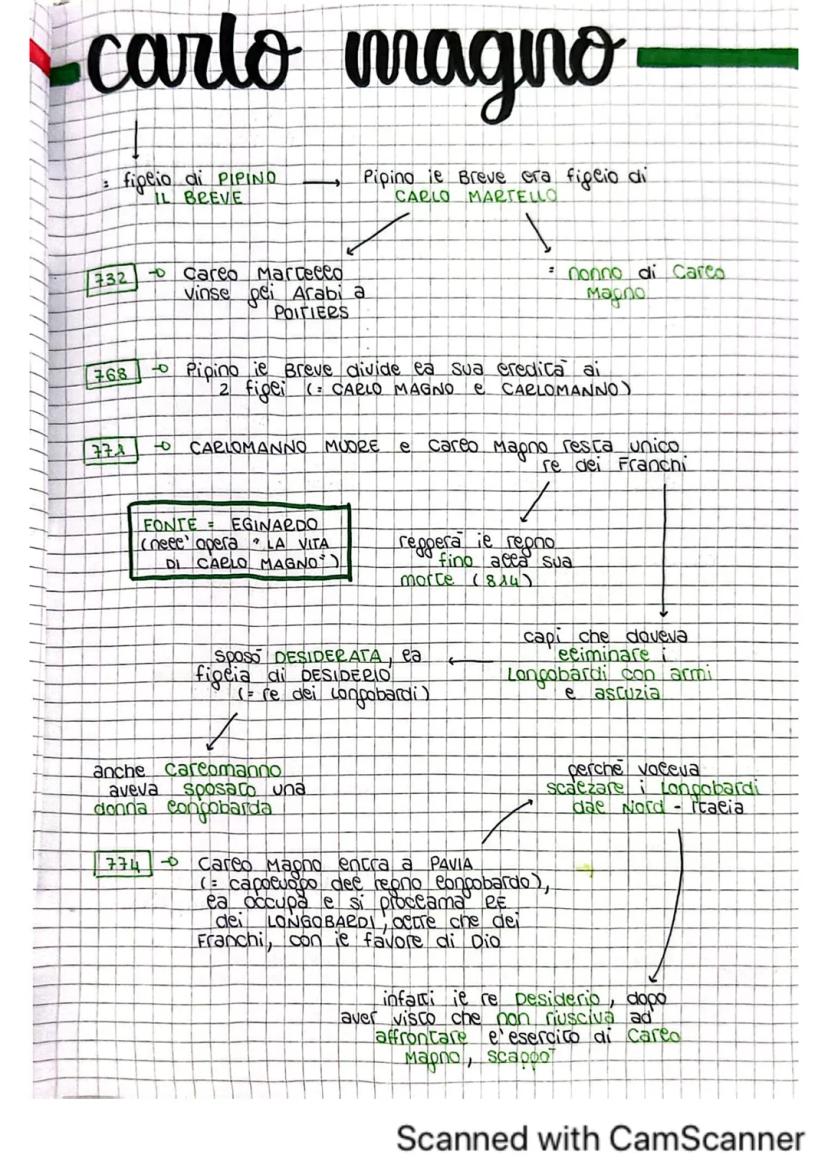 carlo magno
= figlio di PIPINO
IL BREVE
Pipino il Breve era figlio di
CARLO MARTELLO
732 → Carlo Martello
vinse gli Arabi a
POITIERS
= nonno di Carlo
Magno
768 → Pipino il Breve divide la sua eredità ai
2 figli (= CARLO MAGNO e CARLOMANNO)
771 → CARLOMANNO MUORE e Carlo Magno resta unico
re dei Franchi
FONTE = EGINARDO
(nell'opera "LA VITA
DI CARLO MAGNO")
reggerà il regno
fino alla sua
morte (814)
capì che doveva
eliminare i
Longobardi con armi
e astuzia
sposò DESIDERATA, la
figlia di DESIDERIO
(= re dei Longobardi)
anche Carlomanno
aveva sposato una
donna longobarda
perché voleva
scalzare i Longobardi
dal Nord - Italia
774 → Carlo Magno entra a PAVIA
(= capoluogo del regno longobardo),
la occupa e si proclama RE
dei LONGOBARDI, oltre che dei
Franchi, con il favore di Dio
infatti il re Desiderio, dopo
aver visto che non riusciva ad
affrontare l'esercito di Carlo
Magno, scappò
Scanned with CamScanner